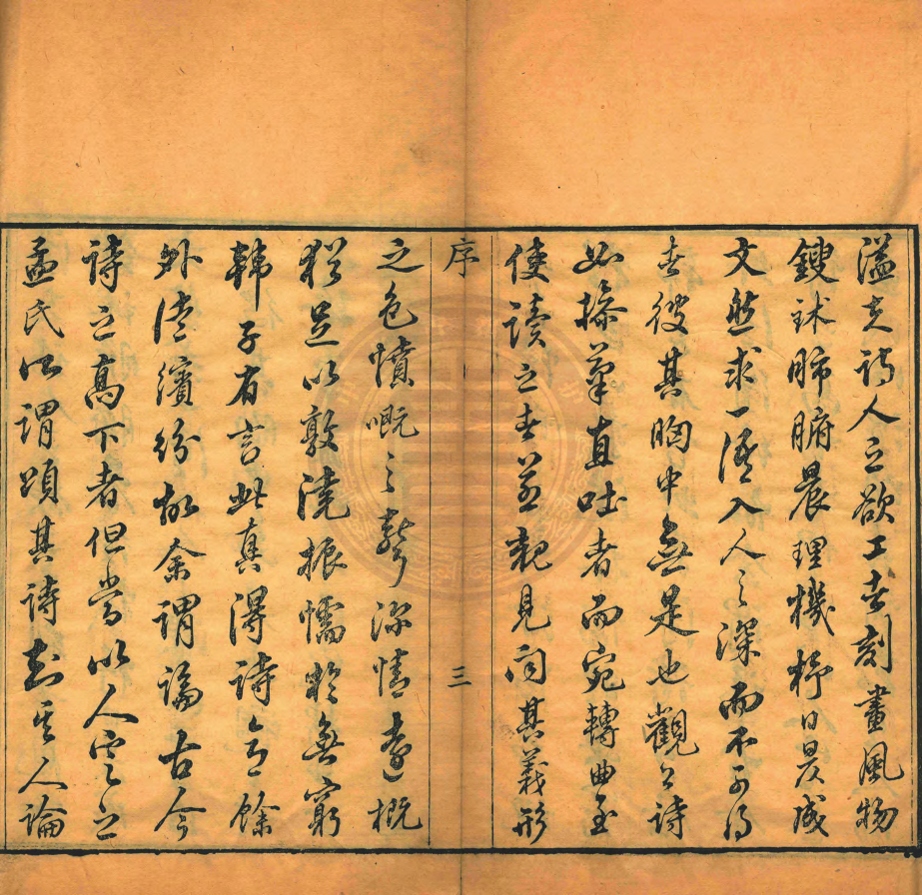 溢矣詩人之欲工者刻畫風物
鎪鉥肺腑晨理機杼日昃成
文然求一語入人之深而不可得
者彼其胸中無是也觀公詩
如操筆直吐者而宛轉曲至
使讀之者若親見聞其義形
序
三
之色憤嘅之聲深情遠概
猶足以敦澆振懦於無窮
韓子有言此真得詩意餘
外徒繽紛故余謂論古今
詩之高下者但當以人定之
孟氏所謂頌其詩知其人論